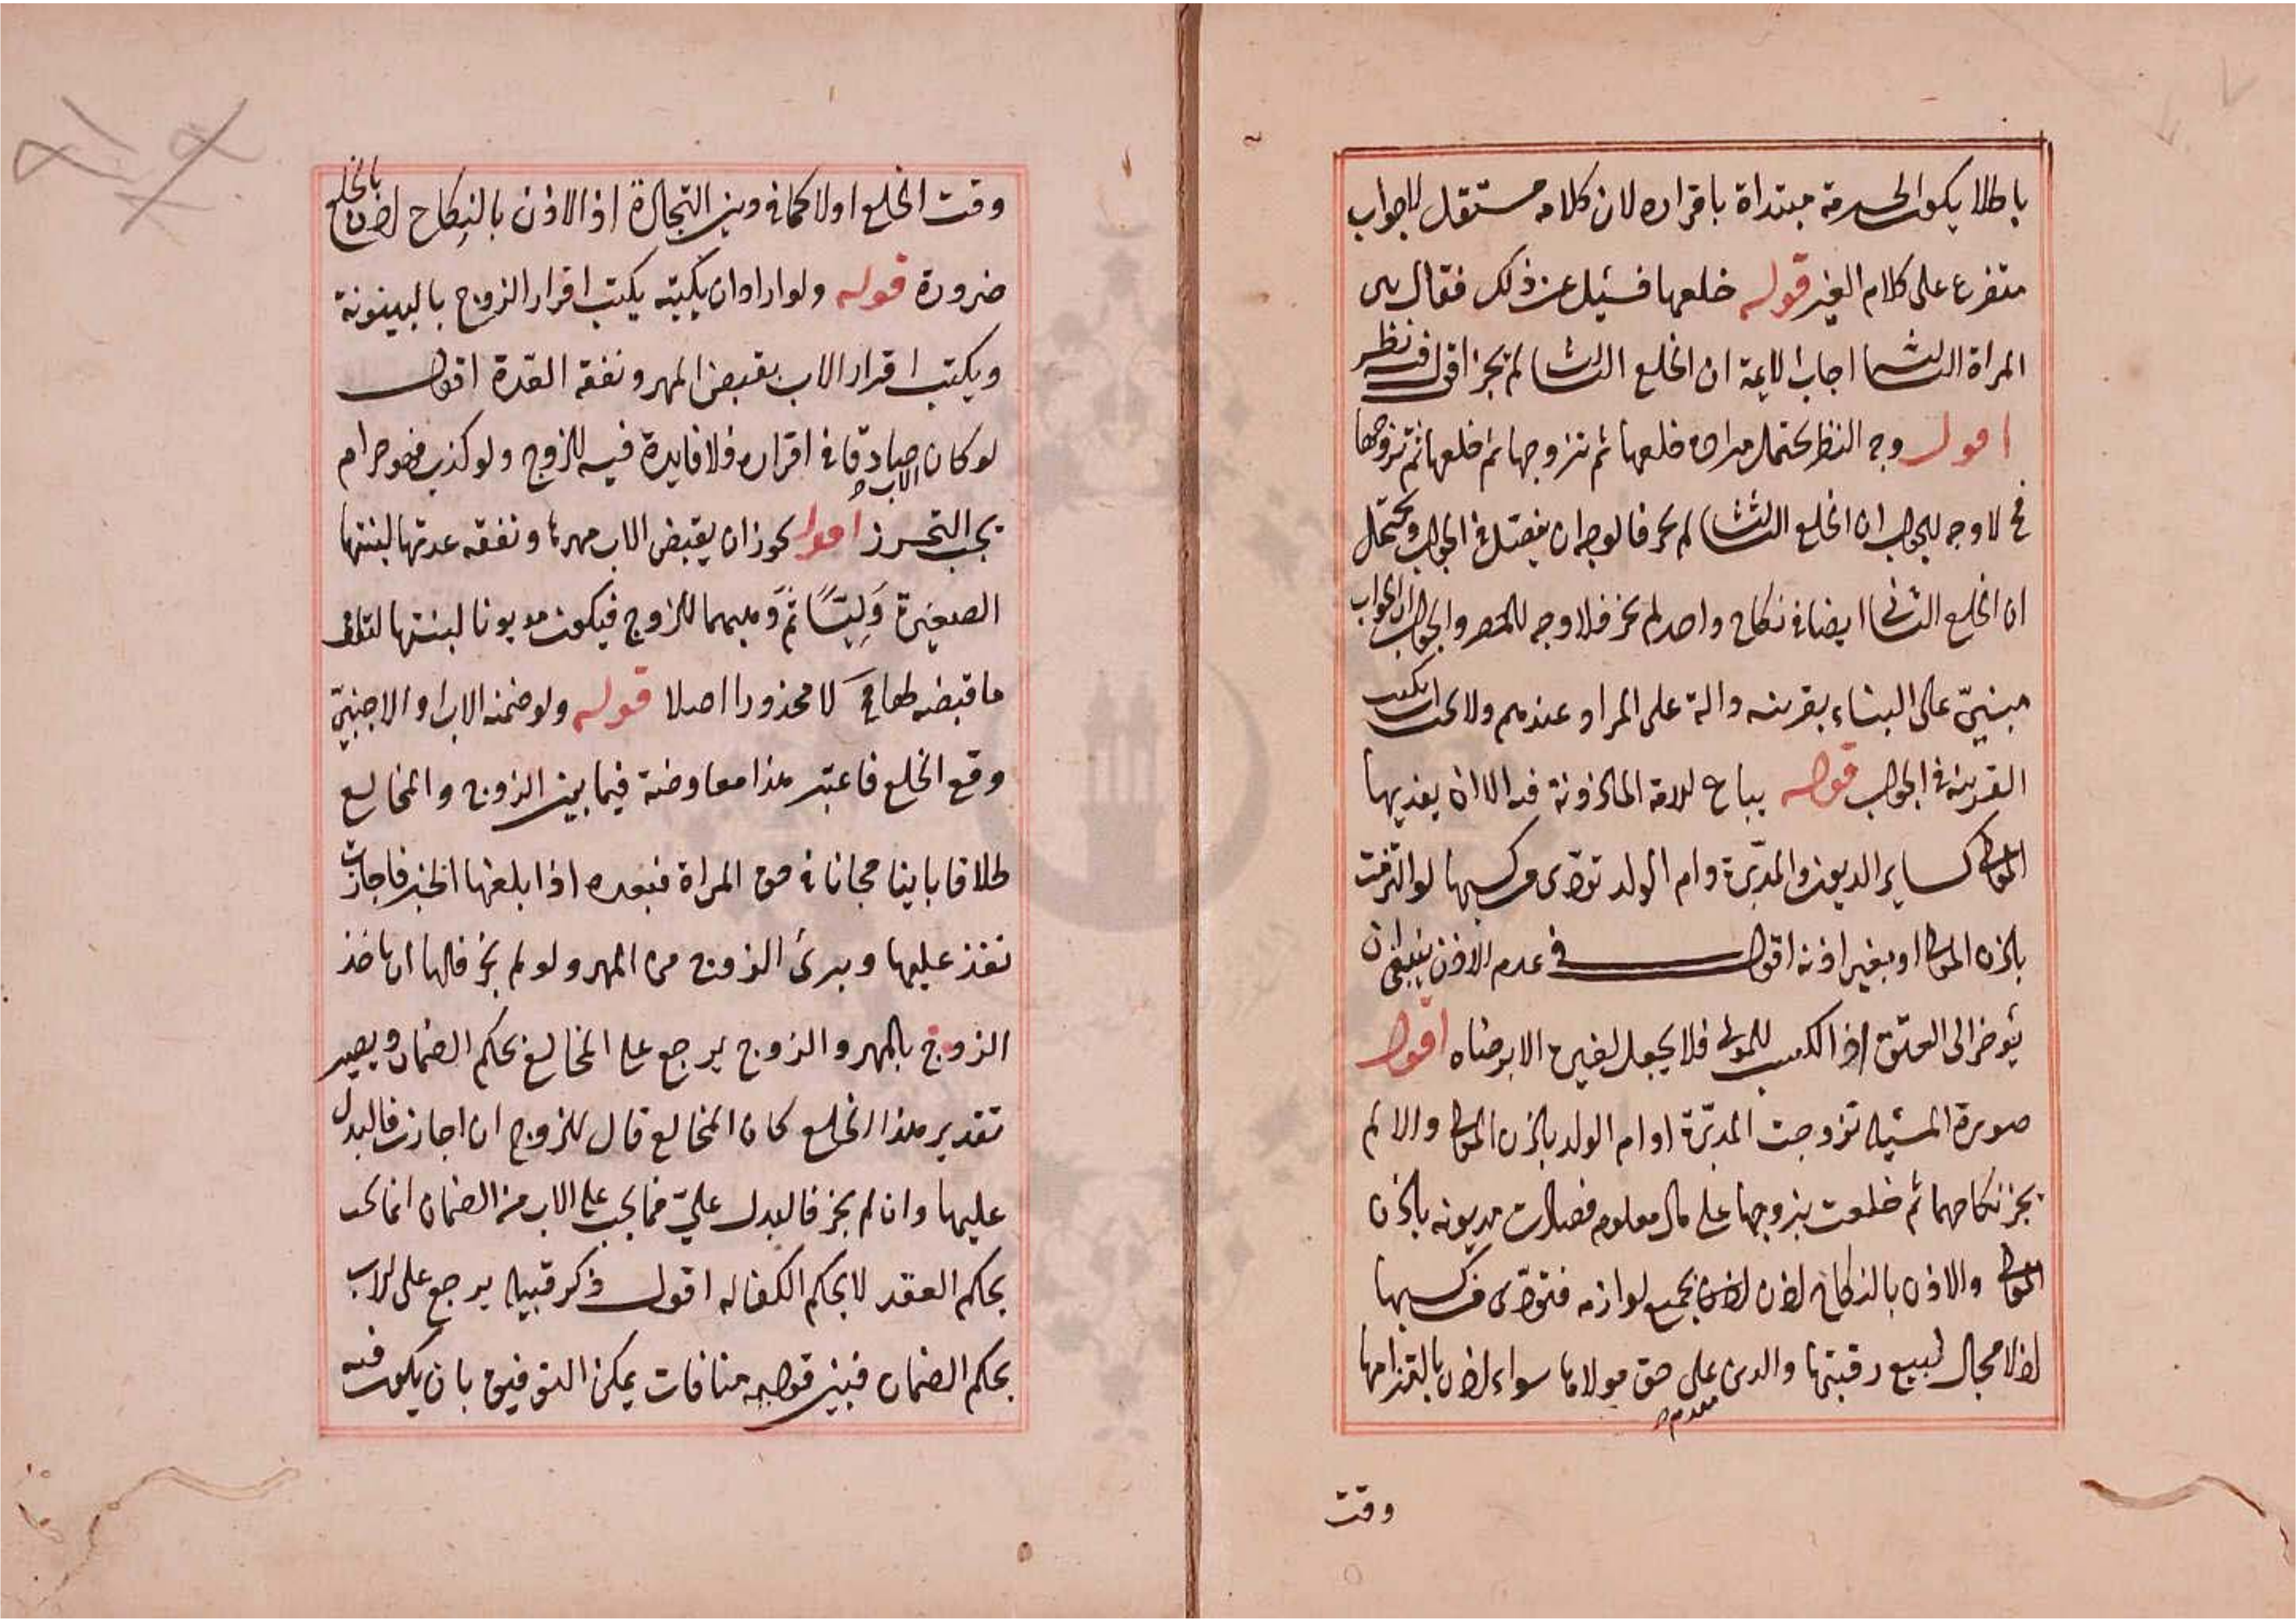 باطلا يكون الحرمة مبتداة باقراره لان كلامه مستقل لا جواب
متفرع على كلام الغير قوله خلعها فسئل عن ذلك فقال سى
المراة الثالث اجاب الايمة ان الخلع الثالث لم يجز اقول فيه نظر
اقول وجه النظر يحتمل مراده خلعها ثم تزوجها ثم خلعها ثم تزوجها
فح لا وجه للجواب ان الخلع الثالث لم يجز فالوجه ان يفصل فى الجواب ويحتمل
ان الخلع الثانى ايضا فى نكاح واحد لم يجز فلا وجه للحصر والجواب ان الجواب
مبنىّ على البناء بقرينه دالة على المراد عندهم ولا يجب ان يكتب
القرينة فى الجواب قوله يباع للامة الماذونة فيه الا ان يفديها
المولى كساير الديون والمدبرة وام الولد تؤدى من كسبها لو التزمت
باذن المولى او بغير اذنه اقول فى عدم الاذن ينبغى ان
يؤخر الى العتق اذ الكسب للمولى فلا يجعل لغيره الا برضاه اقول
صورة المسئلة تزوجت المدبّرة او ام الولد باذن المولى والا لم
يجز نكاحهما ثم خلعت بزوجها على مال معلوم فصارت مديونه باذن
المولى والاذن بالنكاح اذن بجميع لوازمه فتؤدى من كسبها
اذ لا مجال لبيع رقبتها والدين على حق مولاها سواء اذن بالتزامها
مقدم صح
وقت
وقت الخلع اولا كما فى دين التجارة اذ الاذن بالنكاح اذن بالخلع
ضرورة قوله ولو ارادوا ان يكتبه يكتب اقرار الزوج بالبينونة
ويكتب اقرار الاب بقبض المهر ونفقة العدة اقول
لو كان الاب صادقا فى اقراره فلا فايدة فيه للزوج ولو كذب فهو حرام
يجب التحرز اقول يجوز ان يقبض الاب مهرها ونفقه عدتها لبنتها
الصغيرة ولِيّاً ثم وهبهما للزوج فيكون مديونا لبنتها
ما قبضه لها فح لا محذورا اصلا قوله ولو ضمنه الاب او الاجنبىّ
وقع الخلع فاعتبر هذا معاوضة فيما بين الزوج والمخالع
طلاقا باينا مجانا فى حق المراة فبعده اذا بلغها الخبر فاجازت
نفذ عليها وبرئ الزوج من المهر ولو لم يجز فلها ان تاخذ
الزوج بالمهر والزوج يرجع على المخالع بحكم الضمان ويصير
تقدير هذا الخلع كان المخالع قال للزوج ان اجازت فالبدل
عليها وان لم يجز فالبدل علىّ فما يجب على الاب من الضمان انما يجب
بحكم العقد لا بحكم الكفاله اقول ذكر قبيله يرجع على الاب
بحكم الضمان فبين قوليه منافات يمكن التوفيق بان يكون فيه